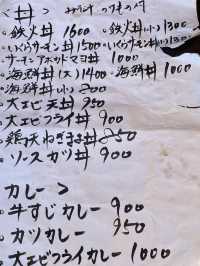 <丼> サラダ つけもの付
。鉄火丼 1600 。鉄火丼(小)1300
。いくらサーモン丼1500 。いくらサーモン丼(小)1200
。サーモンアボカドマヨ丼 1000
。海鮮丼(大)1400 。海鮮丼 1000
。海鮮丼(小)800
。大エビ天丼 950
。大エビフライ丼 900
。鶏天ねぎま丼 850
。ソースカツ丼 900
カレー>
。牛すじカレー 900
。カツカレー 950
。大エビフライカレー 1000